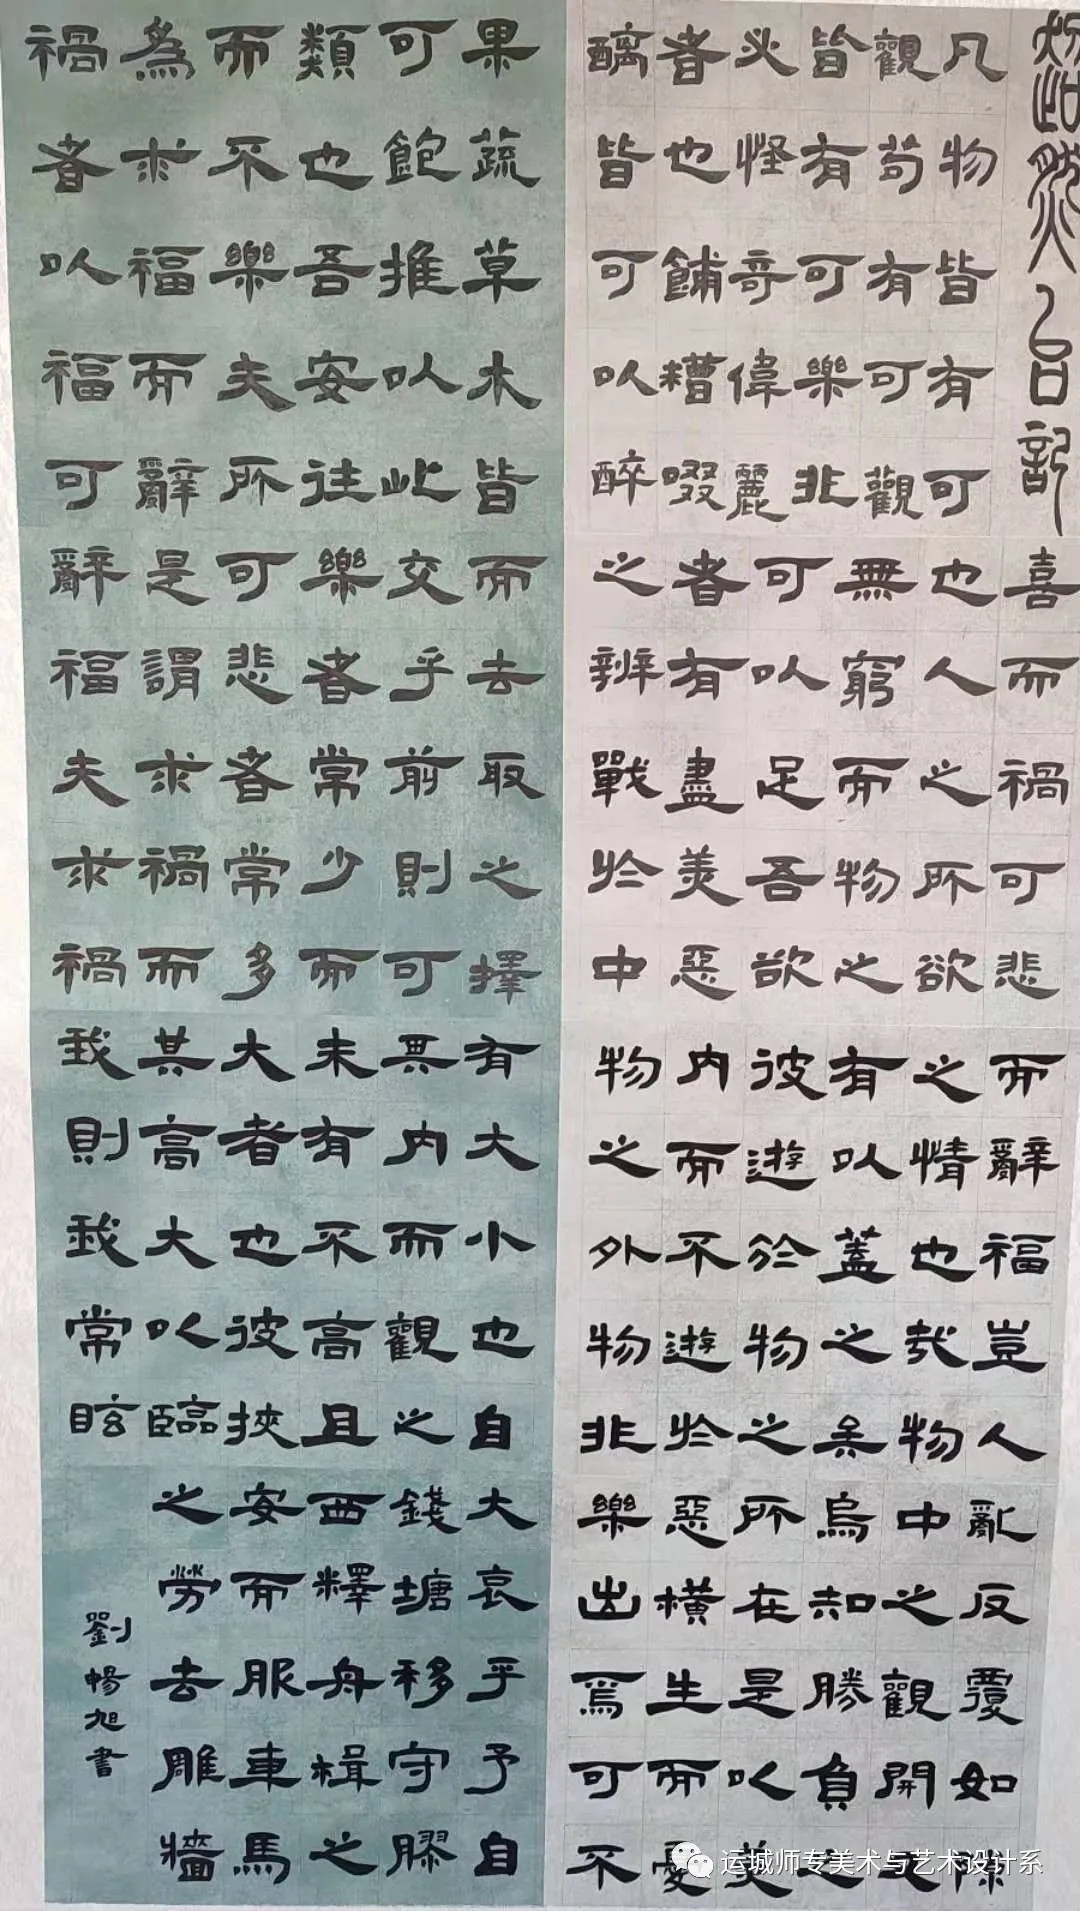 超然台記
凡物皆有可
觀苟有可觀
皆有可樂非
必怪哥偉麗
者也餔糟啜
醨皆可以醉
果蔬草木皆
可飽推以此
類也吾安往
而不樂夫所
為求福而辭
禍者以福可
喜而禍可悲
也人之所欲
無窮而物之
可以足吾欲
者有盡美惡
之辨戰於中
而去取之擇
交乎前則可
樂者常少而
可悲者常多
是謂求禍而
辭福夫求禍
而辭福豈人
之情也哉物
有以蓋之矣
彼遊於物之
內而不遊於
物之外物非
有大小也自
其內而觀之
未有不高且
大者也彼挾
其高大以臨
我則我常眩
亂反覆如隙
中之觀開又
烏知勝負之
所在是以美
惡橫生而憂
樂出焉可不
大哀乎予自
錢塘移守膠
西釋舟楫之
安而服車馬
之勞去雕牆
劉暢旭書
运城师专美术与艺术设计系